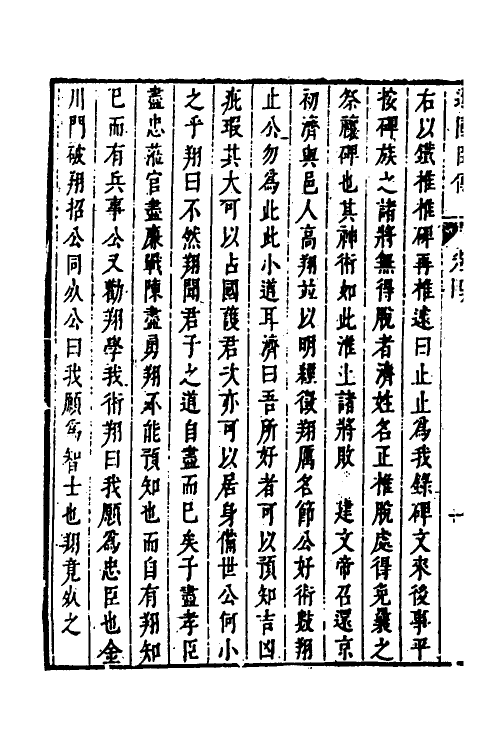 遜國臣傳 卷四 一
右以鐵椎椎碑再椎遽曰止止為我錄碑文來後事平
按碑族之諸將無得脫者濟姓名正椎脫處得免曩之
祭禳碑也其神術如此淮上諸將敗 建文帝召還京
初濟與邑人高翔並以明經徵翔厲名節公好術數翔
止公勿為此此小道耳濟曰吾所好者可以預知吉凶
疵瑕其大可以占國護君次亦可以居身備世公何小
之乎翔曰不然翔聞君子之道自盡而已矣子盡孝臣
盡忠涖官盡廉戰陳盡勇翔不能預知也而自有翔知
已而有兵事公又勸翔學我術翔曰我願為忠臣也金
川門破翔招公同死公曰我願為智士也翔竟死之